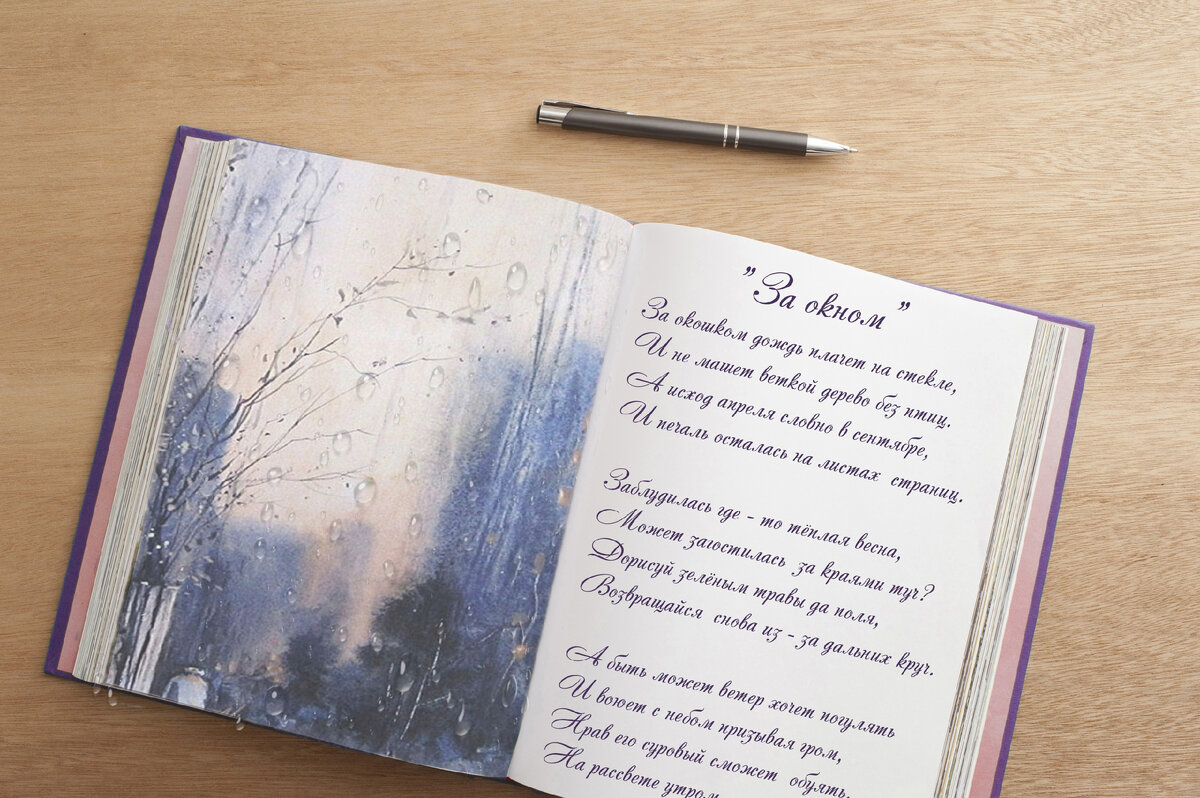 "За окном"
За окошком дождь плачет на стекле,
И не машет веткой дерево без птиц.
А исход апреля словно в сентябре,
И печаль осталась на листах страниц.
Заблудилась где - то тёплая весна,
Может загостилась за краями туч?
Дорисуй зелёным травы да поля,
Возвращайся снова из - за дальних круч.
А быть может ветер хочет погулять
И воюет с небом призывая гром,
Нрав его суровый сможет обуять.
На рассвете утром